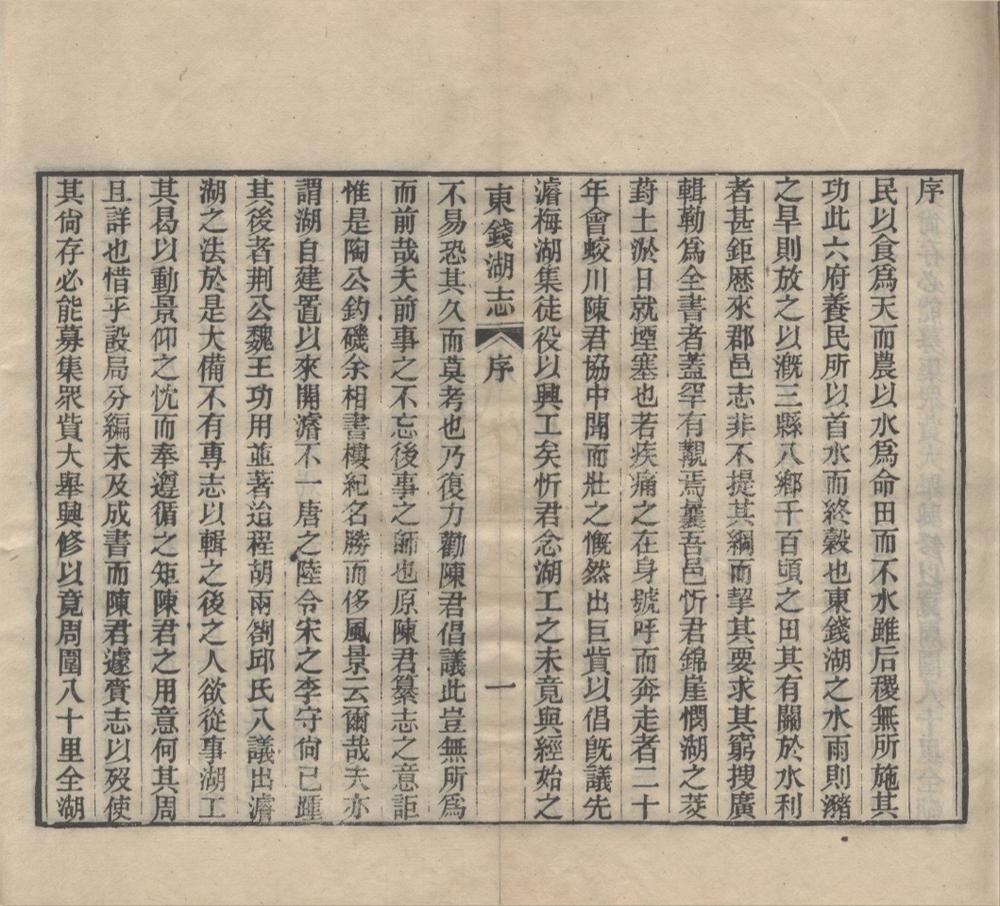 序
民以食爲天而農以水爲命田而不水雖后稷無所施其
功此六府養民所以首水而終穀也東錢湖之水雨則瀦
之旱則放之以漑三縣八鄕千百頃之田其有關於水利
者甚鉅歷來郡邑志非不提其綱而挈其要求其窮搜廣
輯勒爲全書者蓋罕有覯焉曩吾邑忻君錦崖憫湖之茭
葑土淤日就堙塞也若疾痛之在身號呼而奔走者二十
年會蛟川陳君協中聞而壯之慨然出巨貲以倡旣議先
濬梅湖集徒役以興工矣忻君念湖工之未竟與經始之
東錢湖志 序 一
不易恐其久而莫考也乃復力勸陳君倡議此豈無所爲
而前哉夫前事之不忘後事之師也原陳君纂志之意詎
惟是陶公釣磯余相書樓紀名勝而侈風景云爾哉夫亦
謂湖自建置以來開濬不一唐之陸令宋之李守尙已踵
其後者荆公魏王功用並著迨程胡兩劄邱氏八議出濬
湖之法於是大備不有專志以輯之後之人欲從事湖工
其曷以動景仰之忱而奉遵循之矩陳君之用意何其周
且詳也惜乎設局分編未及成書而陳君遽賫志以歿使
其尙存必能募集眾貲大舉興修以竟周圍八十里全湖